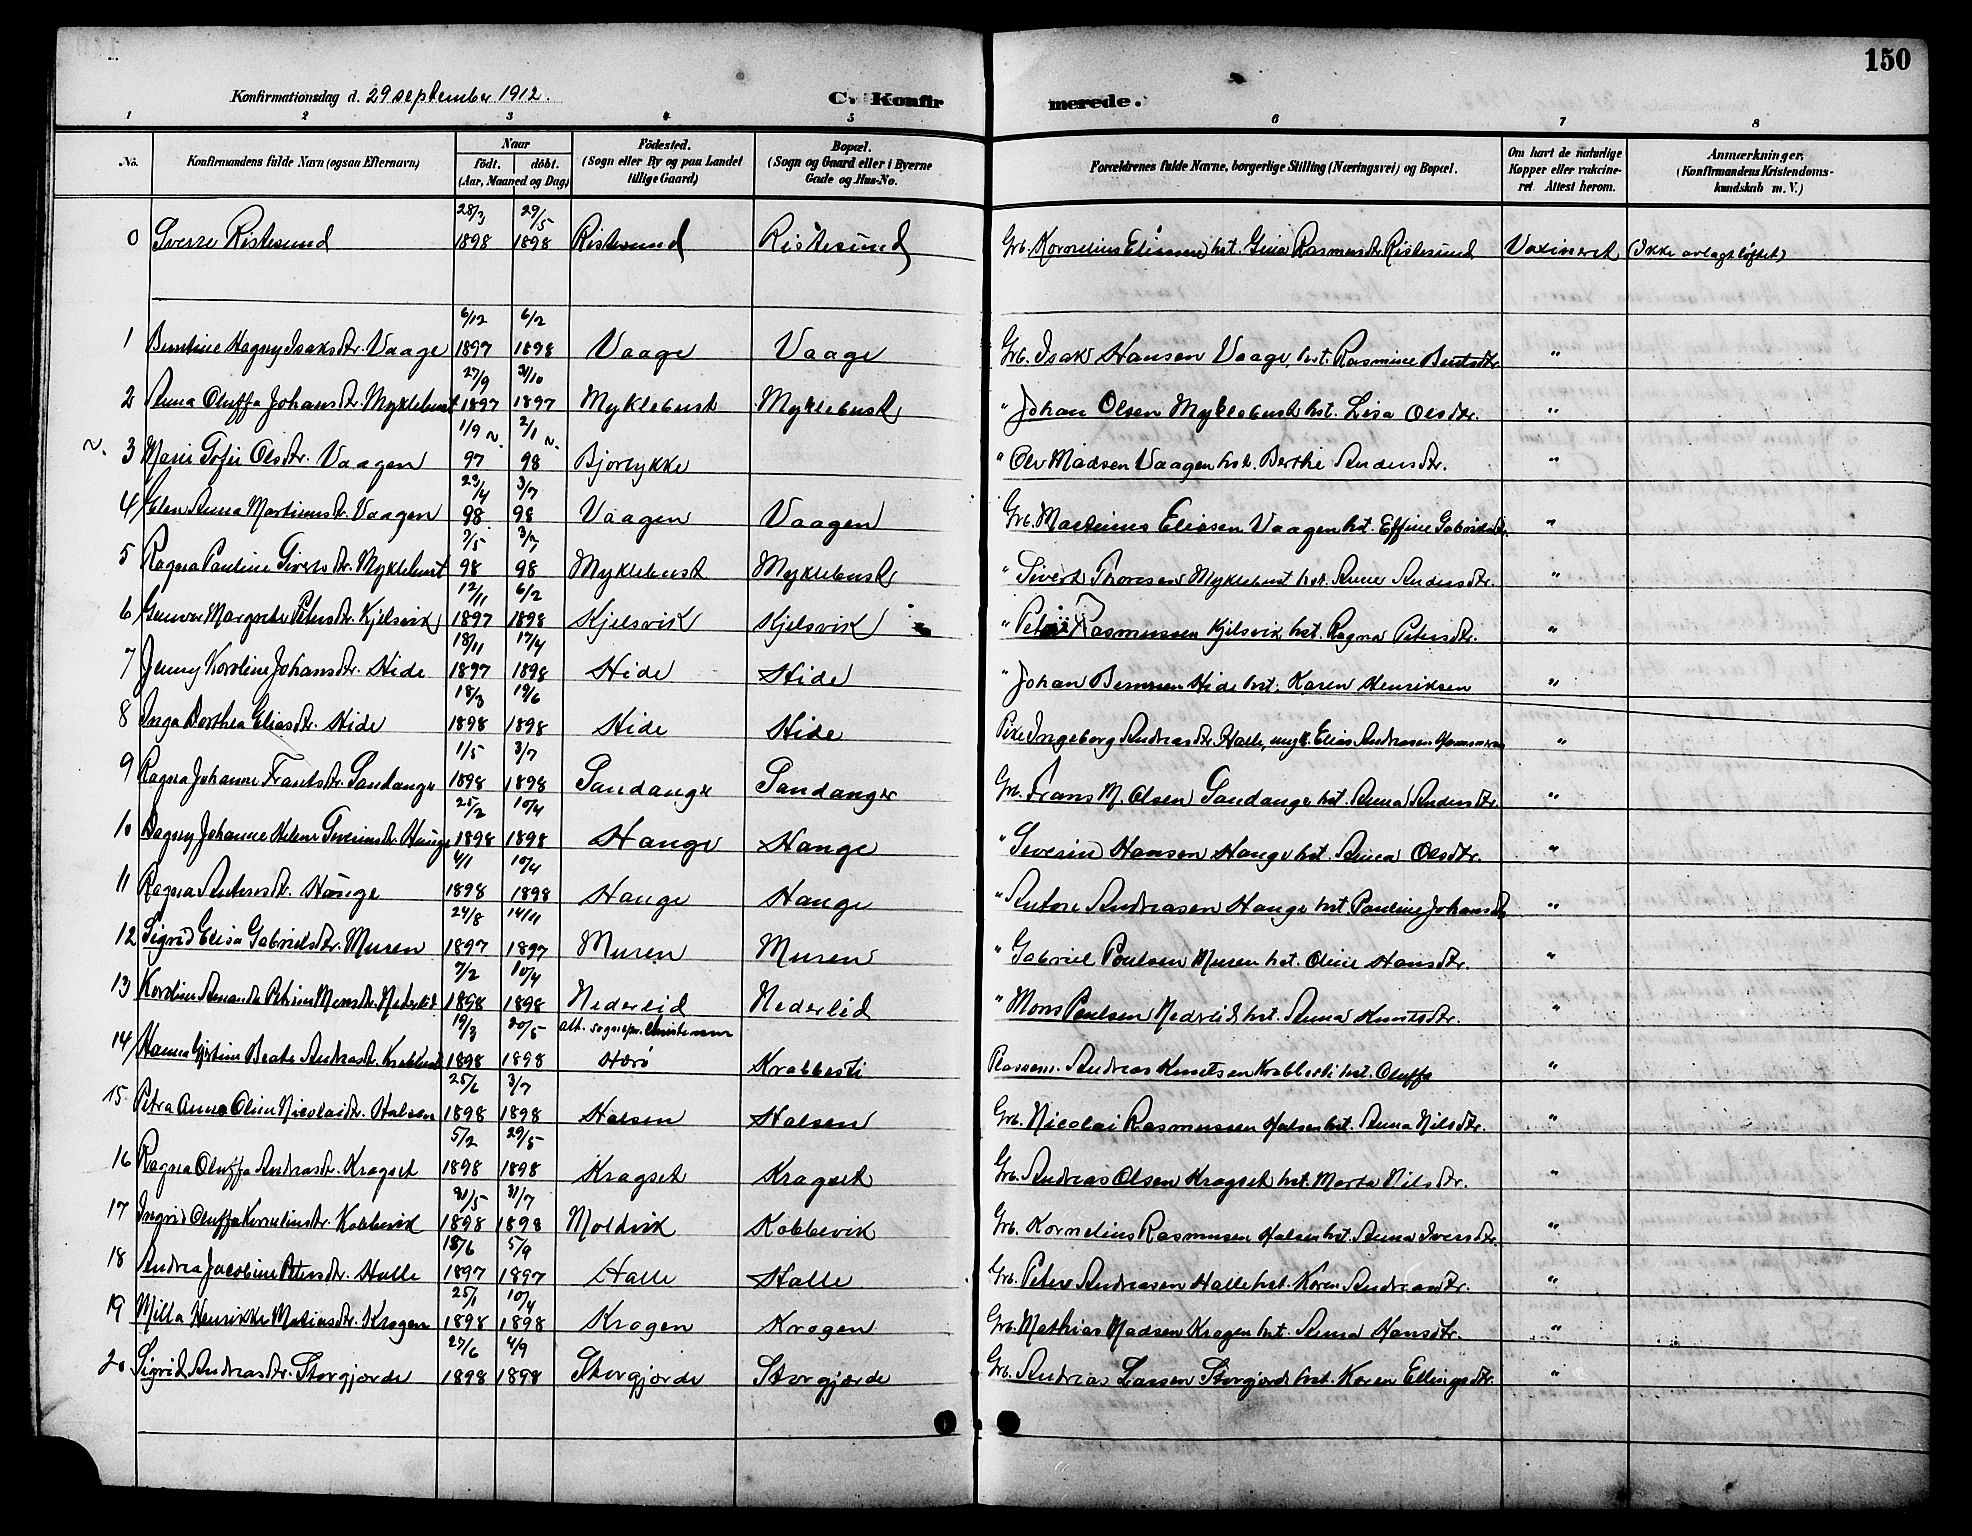 150
Konfirmationsdag d. 29 september 1912. C. Konfirmerede.
1 2 3 4 5 6 7 8
No. Konfirmandens fulde Navn (ogsaa Efternavn) Naar födt. döbt. (Aar, Maaned og Dag) Födested. (Sogn eller By og paa Landet tillige Gaard) Bopæl. (Sogn og Gaard eller i Byerne Gade og Hus-No. Forældrenes fulde Navne, borgerlige Stilling (Næringsvei) og Bopæl. Om havt de naturlige Kopper eller vakcineret. Attest herom. Anmærkninger. (Konfirmandens Kristendomskundskab m. V.)
0 Sverre Ristesund 28/3 1898 29/5 1898 Ristesund Ristesund Grb. Kornelius Eliassen hst. Gina Rasmusdtr. Ristesund Vaxineret (Ikke avlagt løftet)
1 Bentine Hagny Isaksdtr. Vaage 6/12 1897 6/2 1898 Vaage Vaage Grb. Isak Hansen Vaage, hst. Rasmine Bentsdtr. "
2 Anna Oluffa Johansdtr. Myklebust 27/9 1897 31/10 1897 Myklebust Myklebust " Johan Olsen Myklebust hst. Lisa Olsdtr. "
n. 3 Marie Sofie Olsdtr. Vaagen 1/9 n. 97 2/1 n. 98 Bjorlykke " Ole Madsen Vaagen hst. Berthe Andersdtr. "
4 Elen Anna Martinusdtr. Vaagen 23/4 98. 3/7 98 Vaagen Vaagen Grb. Martinus Eliasen Vaagen hst. Effine Gabrielsdtr. "
5 Ragna Pauline Siversdtr. Myklebust 2/5 98 3/7 98 Myklebust Myklebust " Sivert Thoresen Myklebust hst. Anne Andersdtr. "
6 Gunvor Margrethe Petersdtr. Kjelsvik 12/11 1897 6/2 1898 Kjelsvik Kjelsvik " Peter Rasmussen Kjelsvik hst. Ragna Petersdtr. "
7 Jenny Karoline Johansdtr. Hide 18/11 1897 17/4 1898 Hide Hide " Johan Bernsen Hide hst. Karen Henriksen "
8 Inga Dorthea Eliasdtr. Hide 18/3 1898 19/6 1898 Hide Hide Pike Ingeborg Andreasdtr. Halle, ungk. Elias Andreasen "
9 Ragna Johanne Frantsdtr. Sandanger 1/5 1898 3/7 1898 Sandanger Sandanger Grb. Frans M. Olsen Sandanger hst. Anna Andersdtr. "
10 Dagny Johanne Helene Severinsdtr. Hauge 25/2 1898 10/4 1898 Hauge Hauge " Severin Hansen Hauge hst. Anna Olsdtr. "
11 Ragna Antonsdtr. Hauge 4/1 1898 10/4 1898 Hauge Hauge " Anton Andreasen Hauge hst Pauline Johansdtr. "
12 Sigrid Elisa Gabrielsdtr. Muren 24/8 1897 14/11 1897 Muren Muren " Gabriel Poulsen Muren hst. Oline Hansdtr. "
13 Karoline Amanda Petrine Monsdtr. Nederlid 7/2 1898 10/4 1898 Nederlid Nederlid " Mons Poulsen Nederlid hst. Anna Knutsdtr. "
14 Hanna Beate Andreasdtr. 19/3 1898 20/5 1898 att. sognepr. Christensen Herø Krabbesti Plassem. Andreas Knutsen Krabbesti hst. Oluffa "
15 Petra Anna Oline Nicolaisdtr. Halsen 25/6 1898 3/7 1898 Halsen Halsen Grb. Nicolai Rasmussen Halsen hst. Anna Nilsdtr. "
16 Ragna Oluffa Andreasdtr. Kragset 5/2 1898 29/5 1898 Kragset Kragset Grb. Andreas Olsen Kragset hst. Marta Nilsdtr. "
17 Ingrid Oluffa Kornelinsdtr. Kobbevik 31/5 1898 31/7 1898 Moldvik Kobbevik Grb. Kornelius Rasmusen Halsen hst. Anna Iversdtr. "
18 Andrea Jacobine Petersdtr. Halle 18/6 1897 5/9 1897 Halle Halle Grb. Peter Andreasen Halle hst. Karen Andreasdtr. "
19 Milla Henrikke Matiasdtr. Kragen 25/1 1898 10/4 1898 Kragen Kragen Grb. Mathias Madsen Kragen hst. Anna Hansdtr. "
20 Sigrid Andreasdtr. Storgjorde 27/6 1898 4/9 1898 Storgjorde Storgjorde Grb. Andreas Larsen Storgjorde hst. Karen Ellingsdtr. "